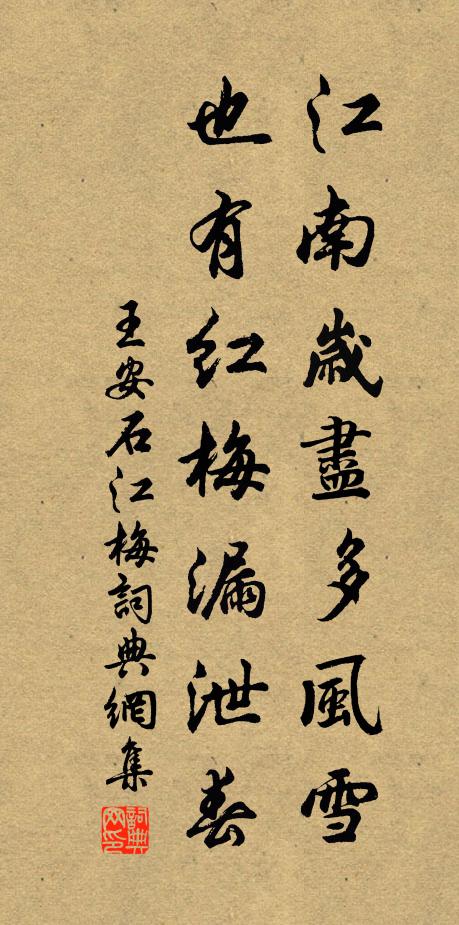 江南歲盡多風雪
也有紅梅漏泄春
王安石江梅詞典網集
詞典网印